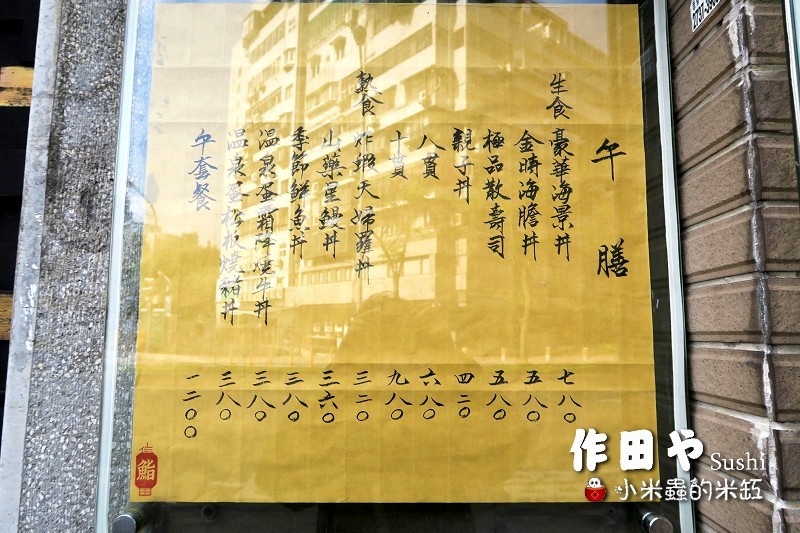 午膳
生食 豪華海景丼 七八〇
金時海膽丼 五八〇
極品散壽司 五八〇
親子丼 四二〇
八貫 六八〇
十貫 九八〇
熟食 炸蝦天婦羅丼 三二〇
山藥星鰻丼 三六〇
季節鮮魚丼 三八〇
溫泉蛋霜降燒牛丼 三八〇
溫泉蛋松板燒豬丼 三八〇
午套餐 一二〇〇
作田
鮨
作田や Sushi
小米蟲的米缸